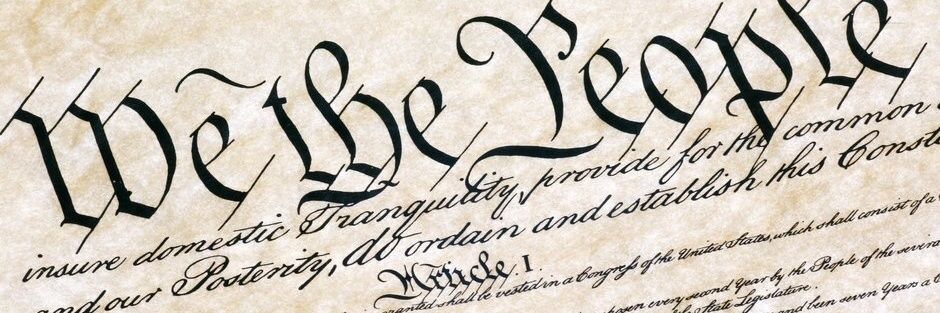 We the People
insure domestic Tranquility, provide for the common
and our Posterity, do ordain and establish this Const
Article. I.
granted shall be vested in a Congress of the United States, which shall consist of a
chosen every second Year by the People of the several
State Legislature.
and been seven Years a C